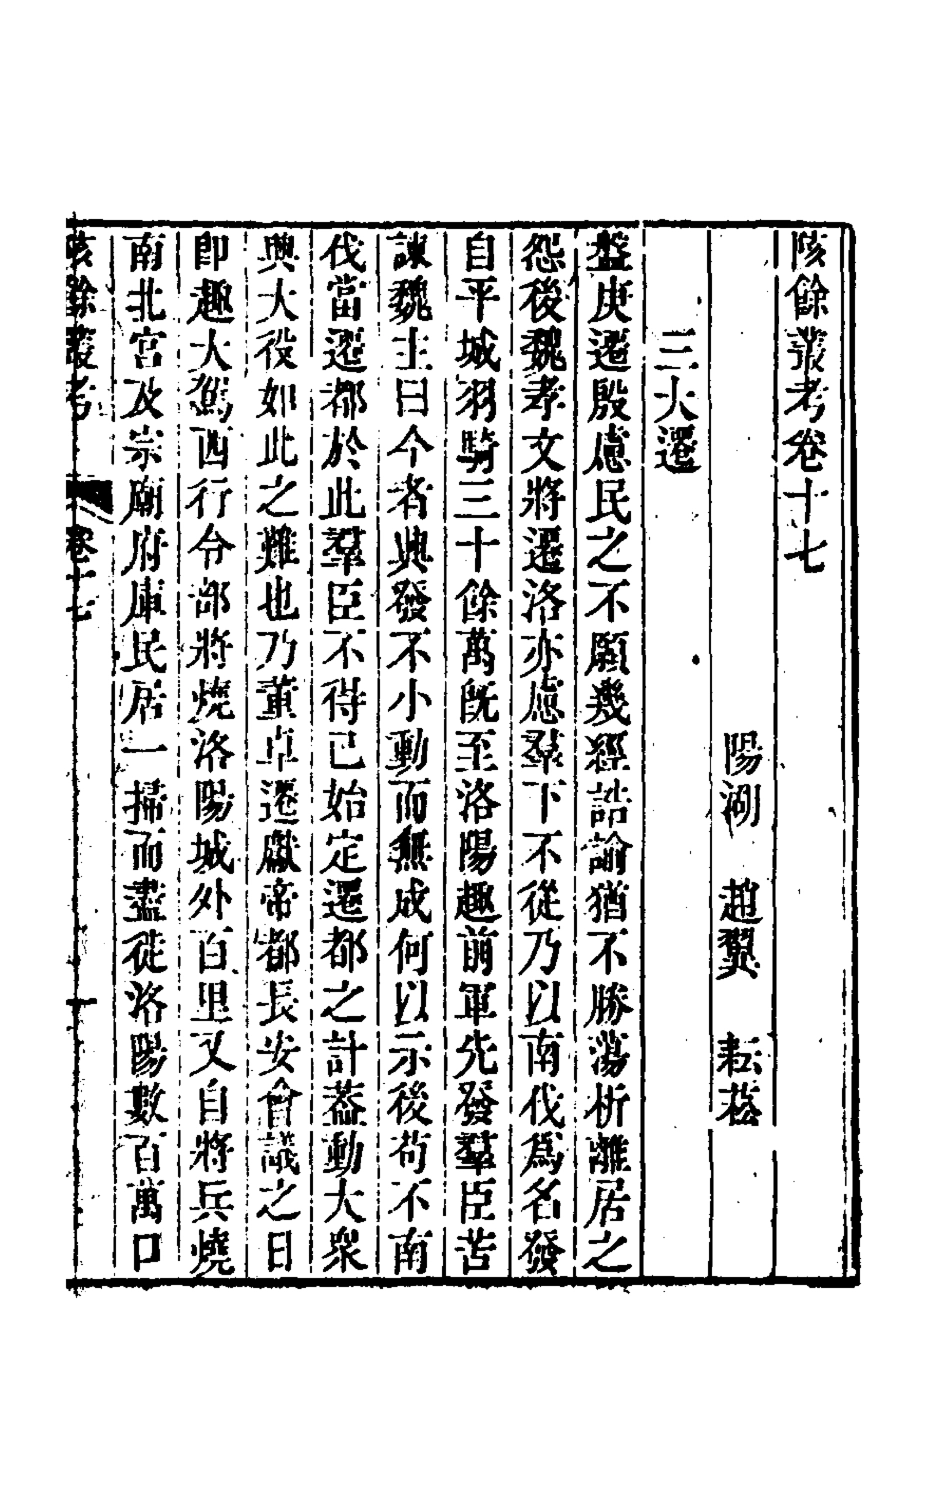 陔餘叢考卷十七
陽湖 趙翼 耘菘
三大遷
盤庚遷殷慮民之不願幾經誥諭猶不勝蕩析離居之
怨後魏孝文將遷洛亦慮羣下不從乃以南伐爲名發
自平城羽騎三十餘萬旣至洛陽趣前軍先發羣臣苦
諫魏主曰今者興發不小動而無成何以示後苟不南
伐當遷都於此羣臣不得已始定遷都之計蓋動大衆
興大役如此之難也乃董卓遷獻帝都長安會議之日
卽趣大駕西行令部將燒洛陽城外百里又自將兵燒
南北宮及宗廟府庫民居一掃而盡徙洛陽數百萬口
陔餘叢考 卷十七 一